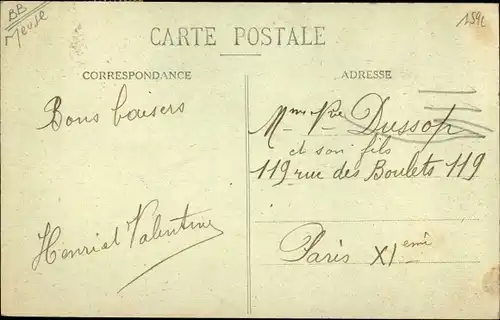 BB
Meuse
1591
CARTE POSTALE
CORRESPONDANCE
ADRESSE
Bons baisers
Henri et Valentine
Mme Vve Dussop
et son fils
119 rue des Boulets 119
Paris XIeme